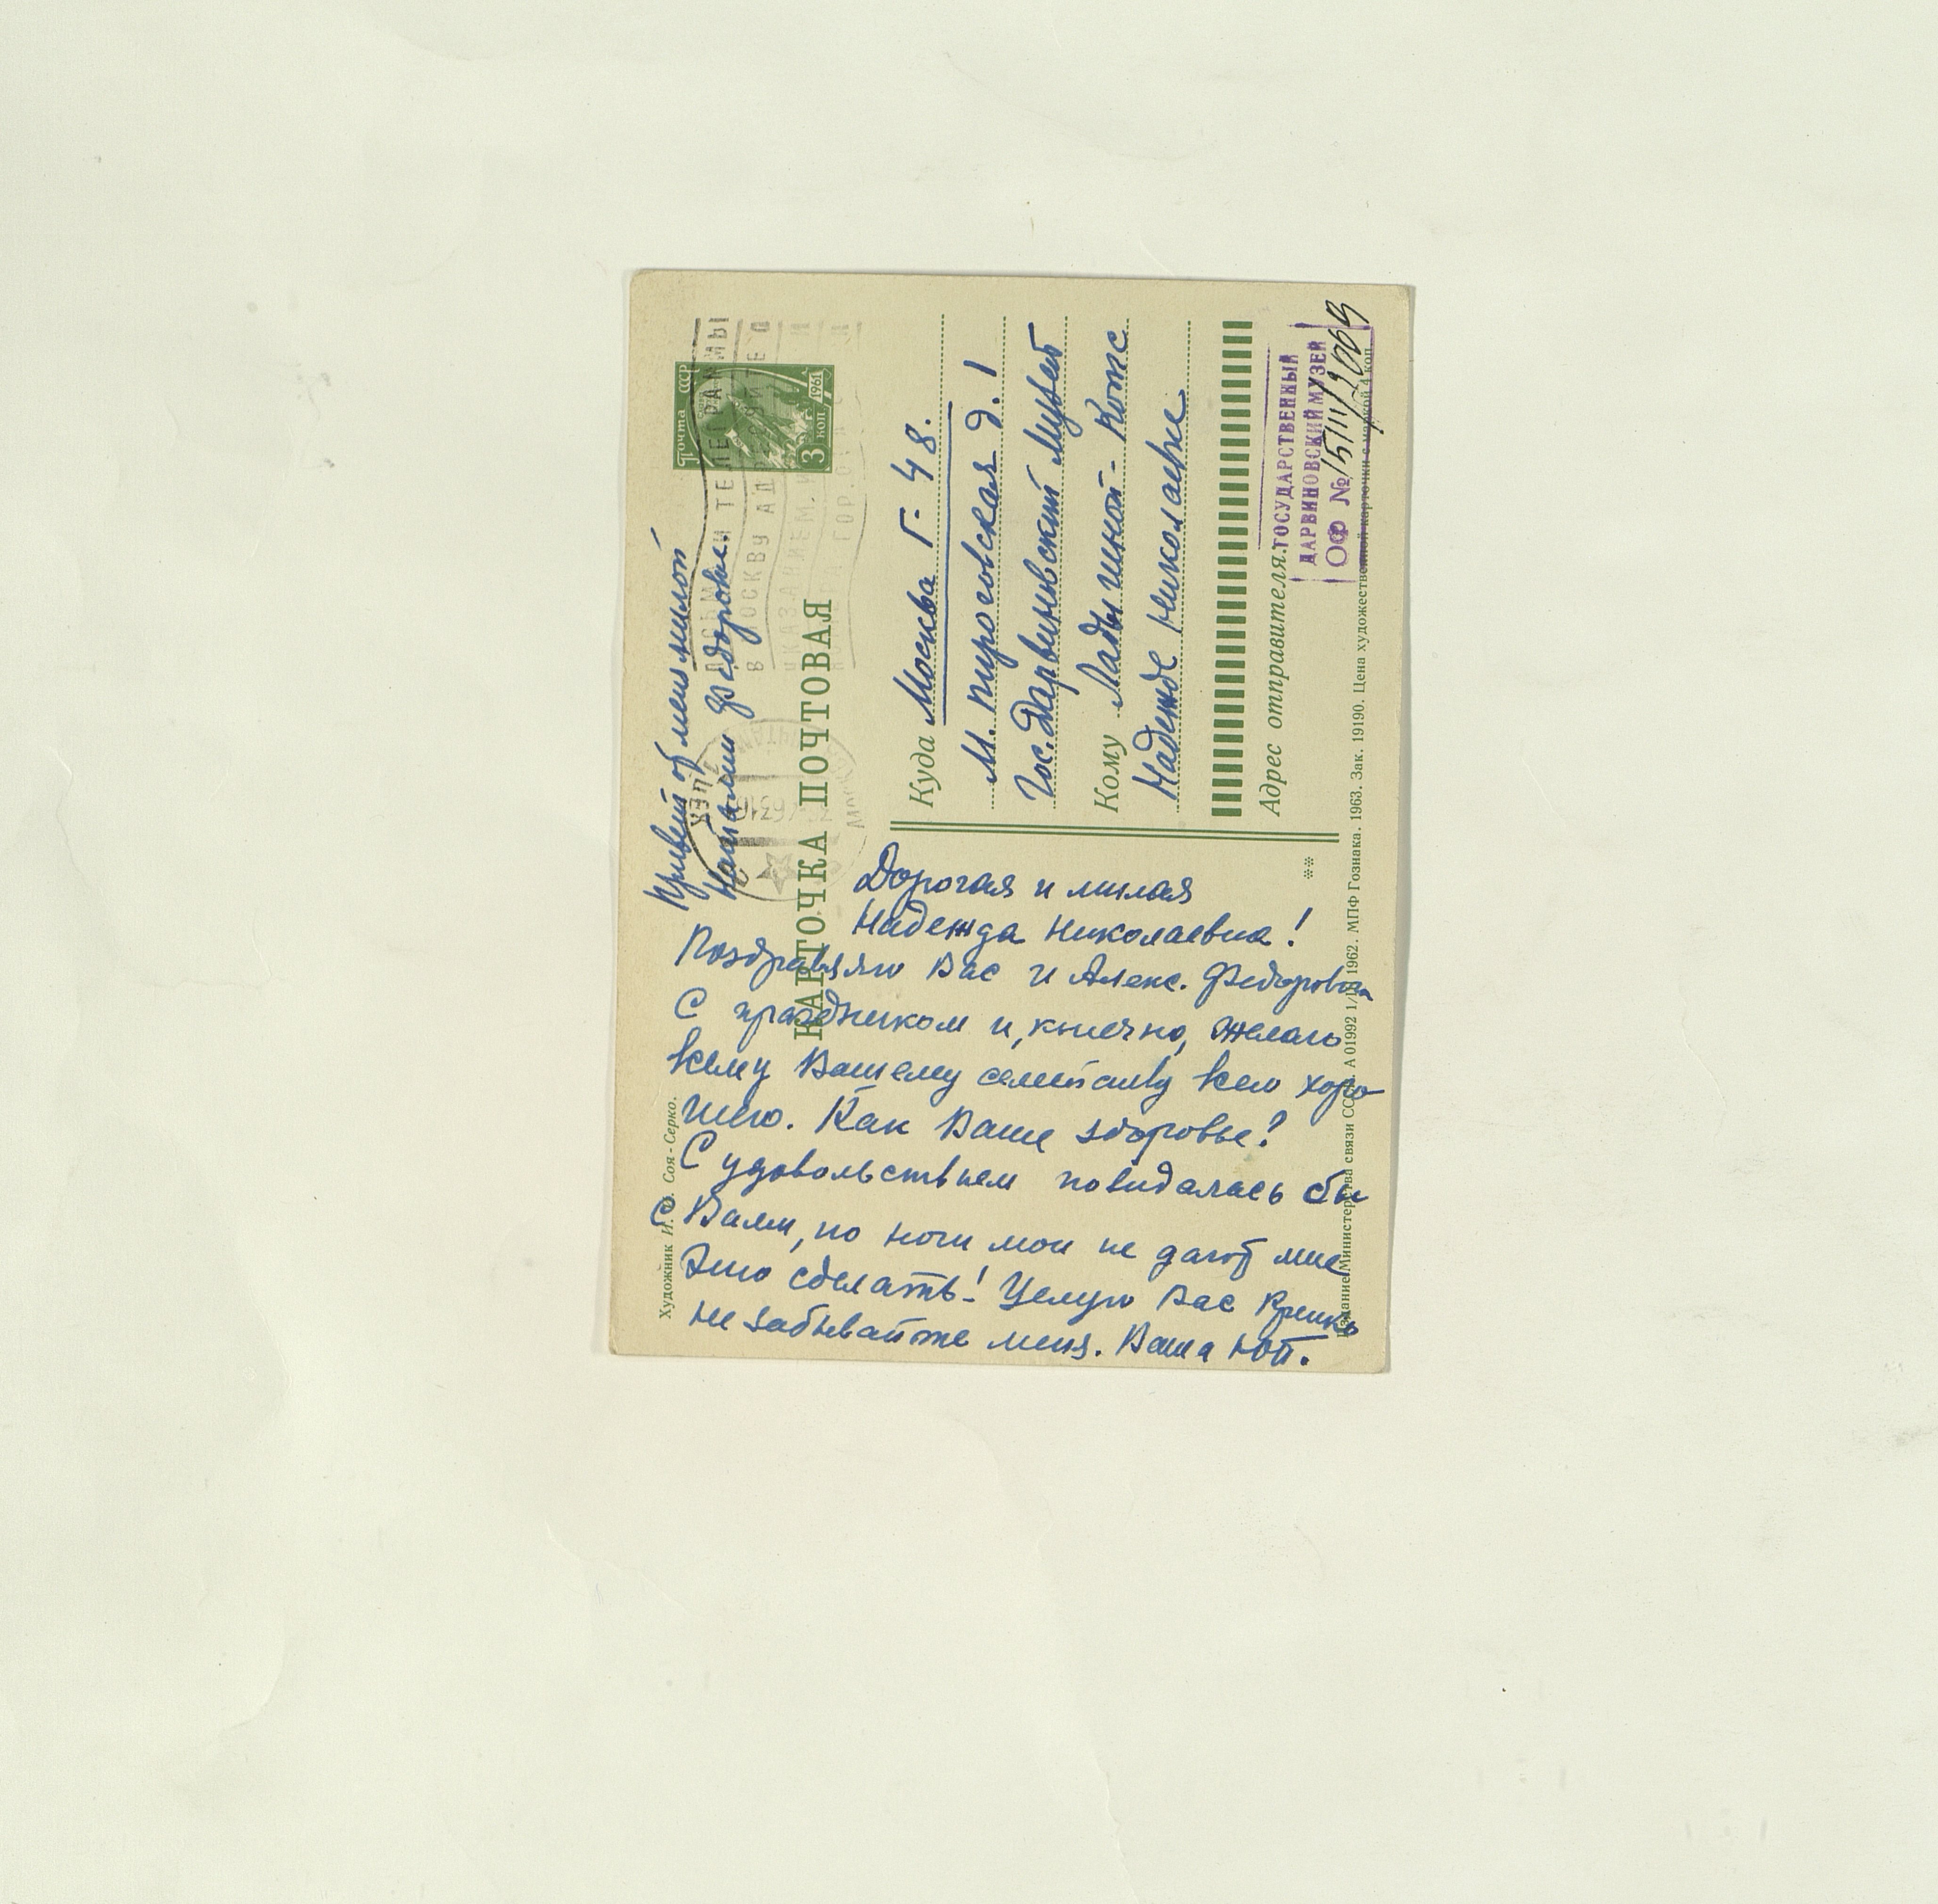 Привет от меня милой
Наталии Федоровне.
КАРТОЧКА ПОЧТОВАЯ
почта СССР
3 коп
1961
ТЕЛЕГРАММЫ
В МОСКВУ АДРЕСУЙТЕ С
УКАЗАНИЕМ
Куда Москва Г-48.
М. Пироговская д. 1
Гос. Дарвиновский Музей
Кому Ладыгиной-Котс
Надежде Николаевне
Адрес отправителя:
ГОСУДАРСТВЕННЫЙ
ДАРВИНОВСКИЙ МУЗЕЙ
ОФ №
Дорогая и милая
Надежда Николаевна!
Поздравляю Вас и Алекс. Федоровича
С праздником и, конечно, желаю
всему Вашему семейству всего хоро
шего. Как Ваше здоровье?
С удовольствием повидалась бы
с Вами, но ноги мои не дают мне
это сделать! Целую Вас крепко
не забывайте меня. Ваша
Художник И. Соя-Серко.
Издание Министерства связи СССР. А 01992 1/IX 1962. МПФ Гознака. 1963. Зак. 19190. Цена художественной карточки с маркой 4 коп.